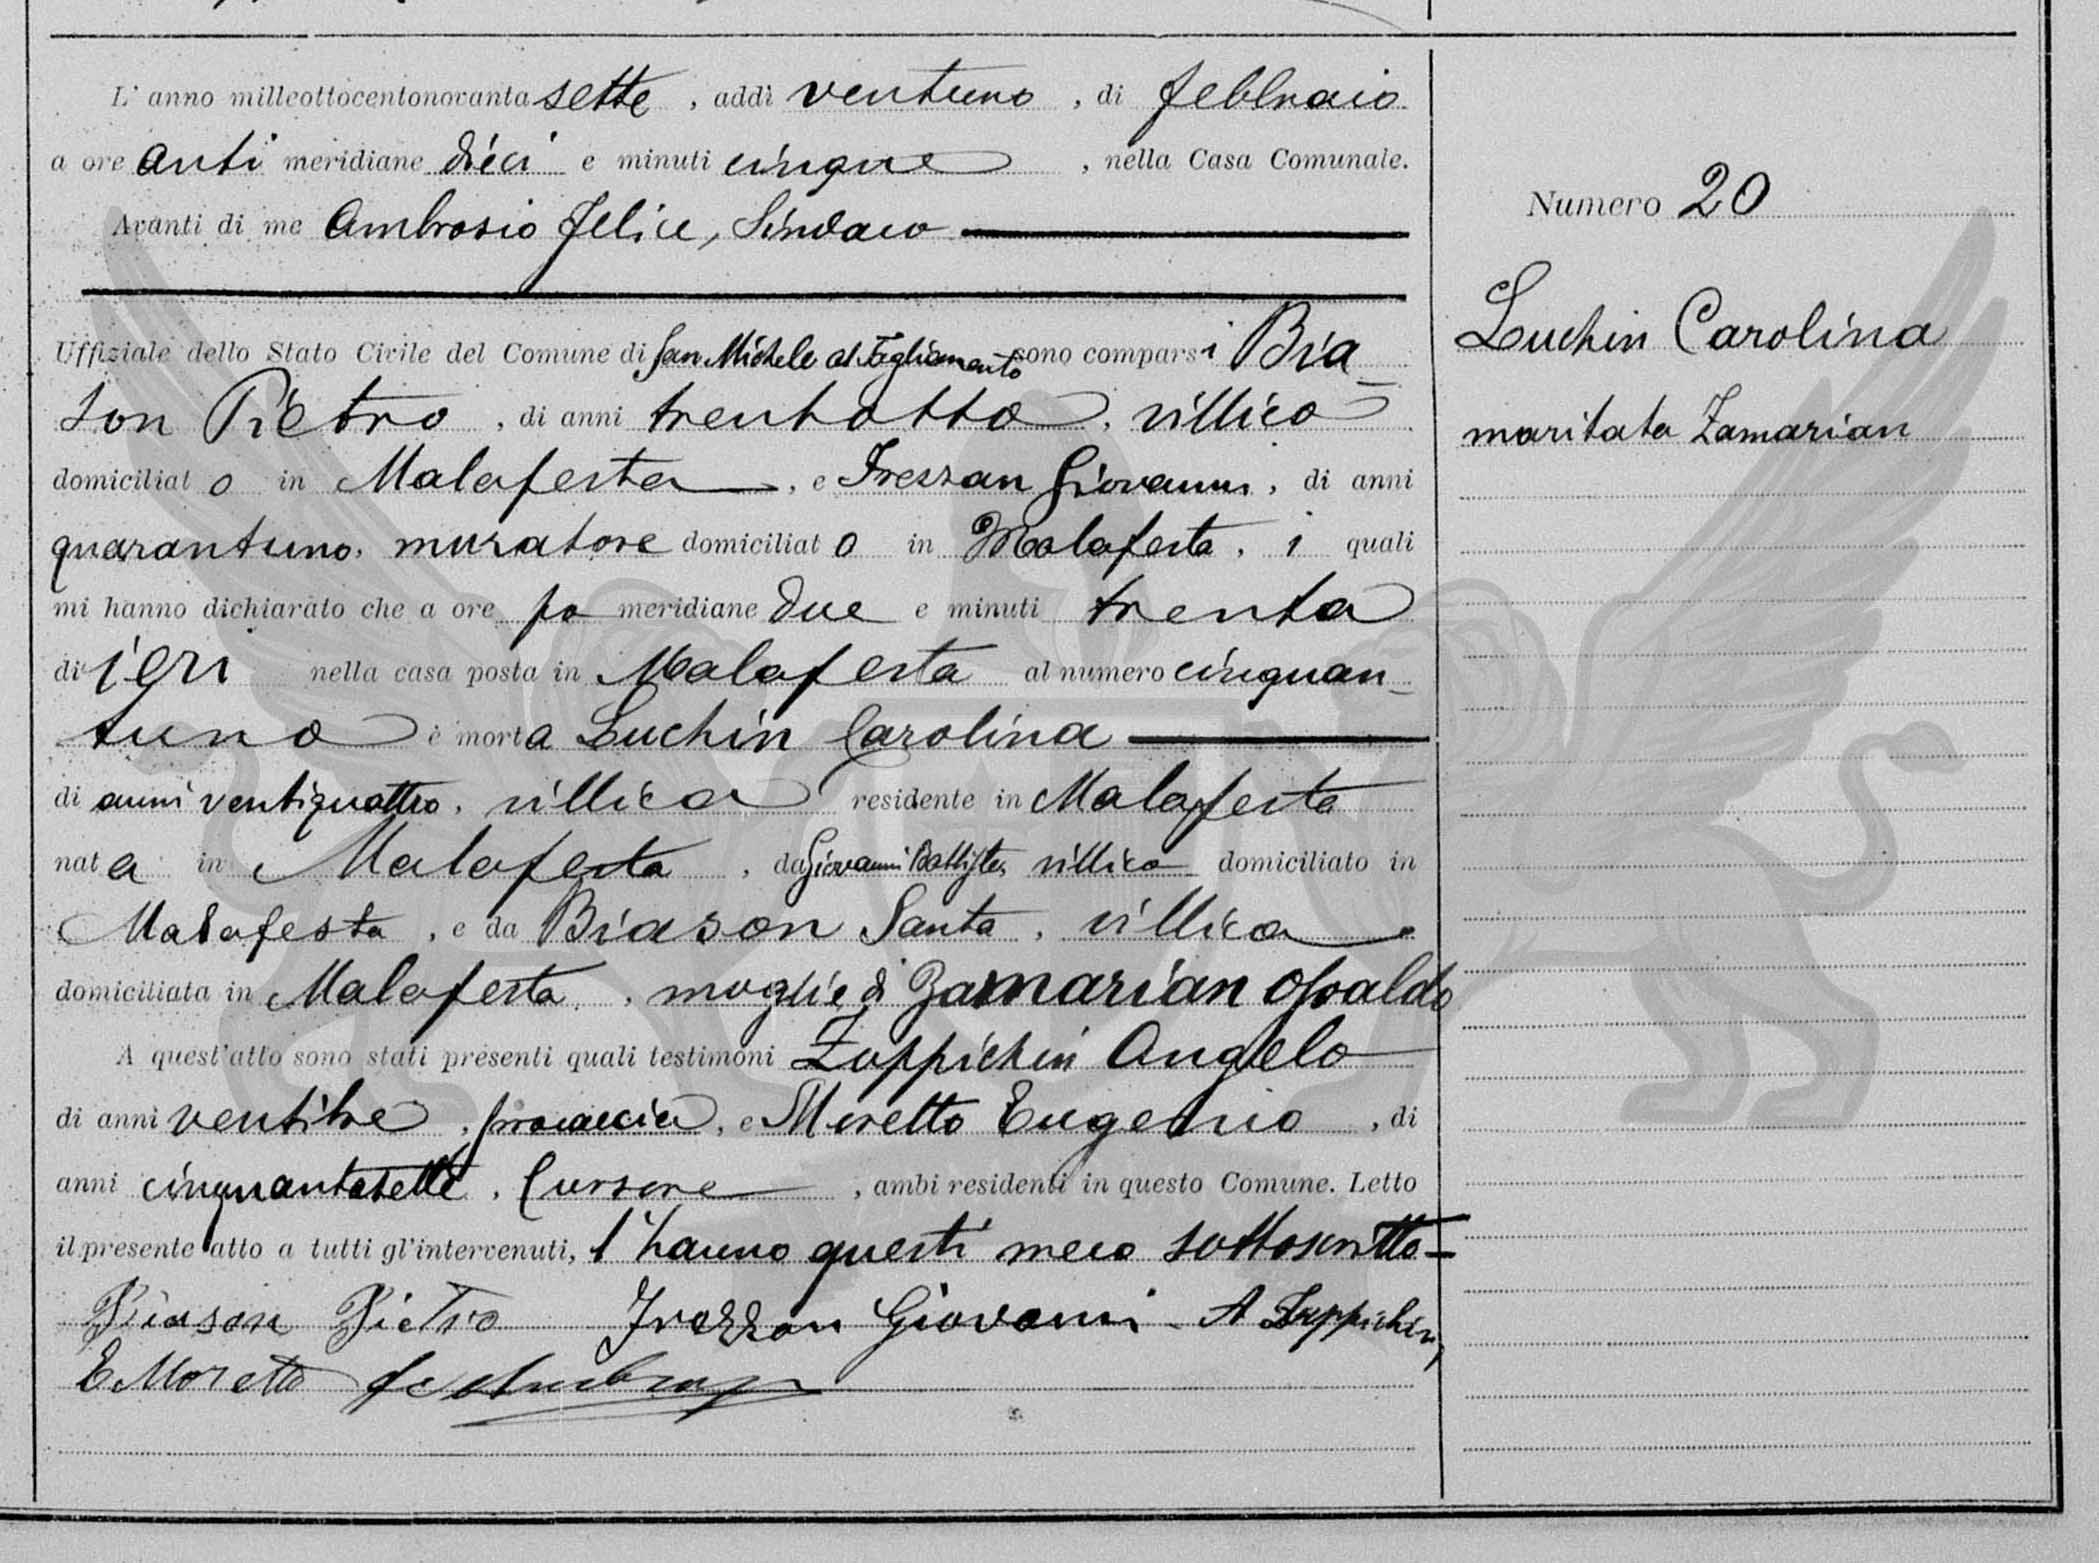 L' anno milleottocentonovanta sette, addì ventuno, di febbraio
a ore anti meridiane dieci e minuti cinque, nella Casa Comunale.
Avanti di me Ambrosio Felice, Sindaco
Uffiziale dello Stato Civile del Comune di San Michele al Tagliamento sono comparsi Bia-
son Pietro, di anni trentotto, villico
domiciliato in Malafesta, e Frezzan Giovanni, di anni
quarantuno, muratore domiciliato in Malafesta, i quali
mi hanno dichiarato che a ore po meridiane due e minuti trenta
di ieri nella casa posta in Malafesta al numero cinquan-
tuno è morta Luchin Carolina
di anni ventiquattro, villica residente in Malafesta
nata in Malafesta, da Giovanni Battista, villico domiciliato in
Malafesta, e da Biason Santa, villica
domiciliata in Malafesta, moglie di Zamarian Osvaldo
A quest'atto sono stati presenti quali testimoni Zuppichin Angelo
di anni ventitre, procaccia, e Moretto Eugenio, di
anni cinquantasette, Cursore, ambi residenti in questo Comune. Letto
il presente atto a tutti gl'intervenuti, l'hanno questi meco sottoscritto-
Biason Pietro Frezzan Giovanni - A Zuppichin,
E Moretto
Numero 20
Luchin Carolina
maritata Zamarian